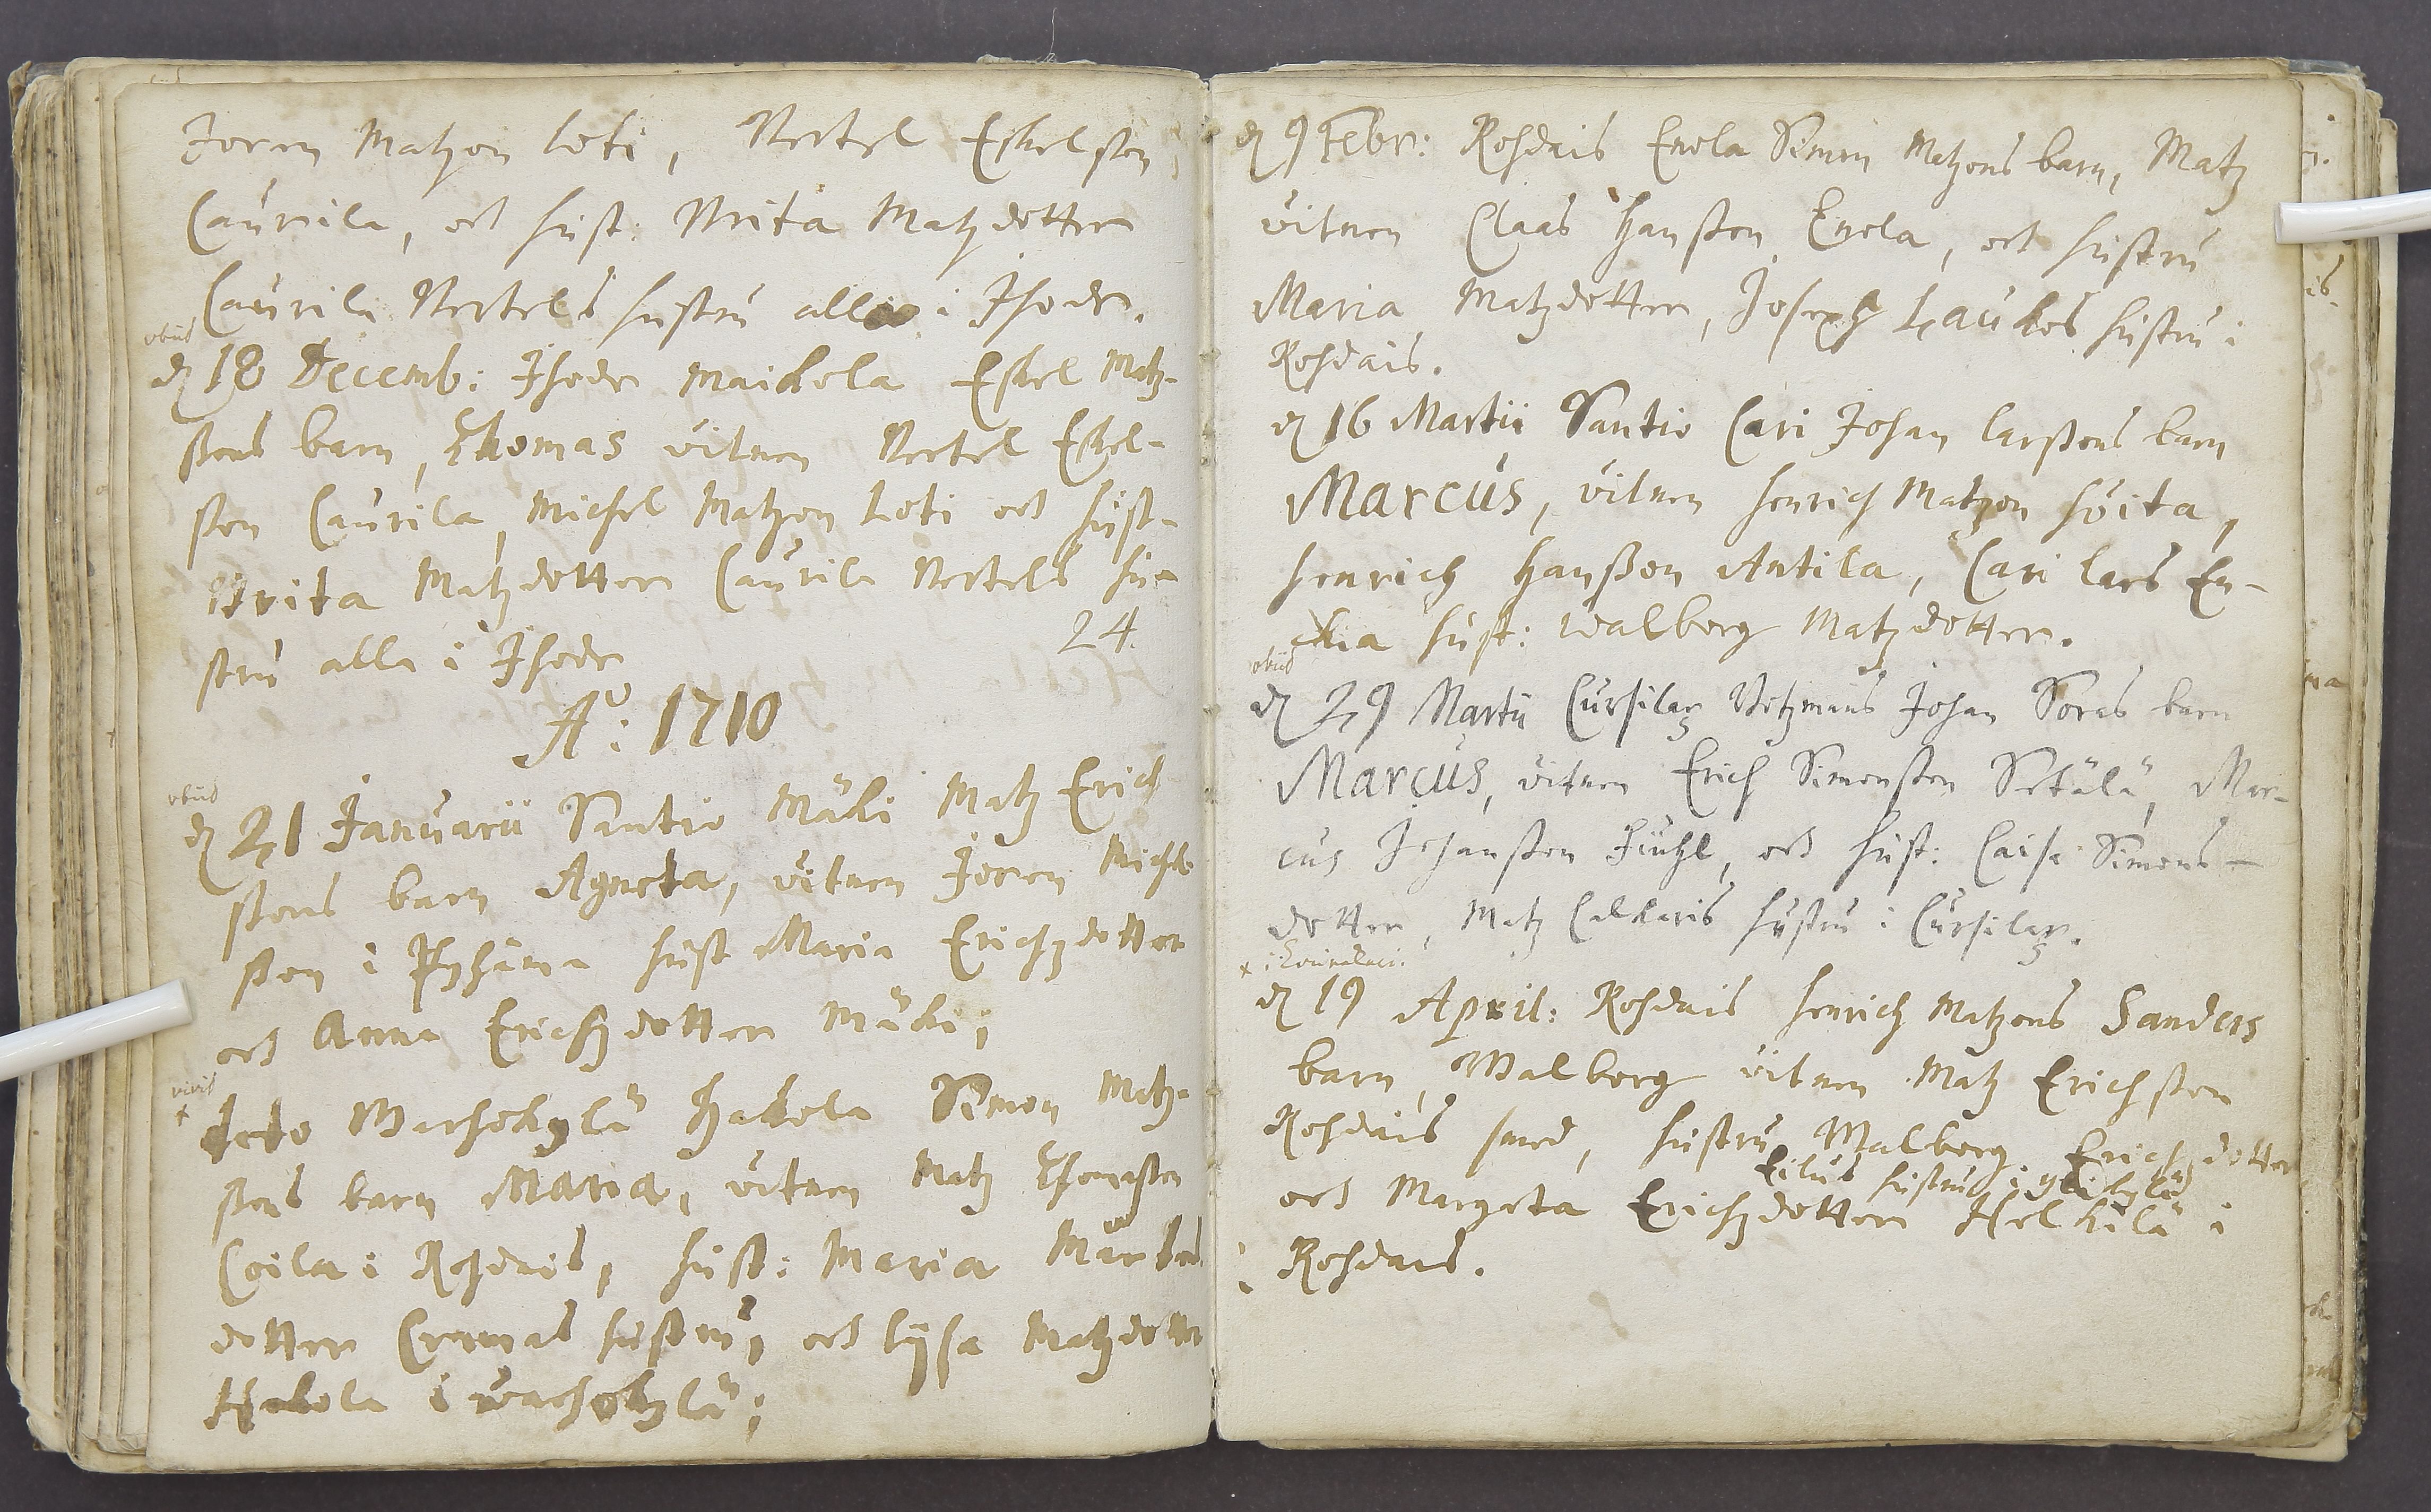 Joren Matzon Loti, Bertel Eskelsson
Caurila, och hust: Brita Matzdotter
Caurila Bertels hustru alla i Jhode.
obiit
d 18 Decemb: Jhode Maickola Eskel Matz-
sons barn, Thomas vitnen Bertel Eskel-
son Caurila, Michel Matzon Loti och hust-
Brita Matzdotter Caurila Bertels hu-
stru alla i Jhode
24.
A°: 1710
obiit
d 21 Januarii Santio Mäki Matz Erich
sons barn Agneta, vitnen Joren Michel
son i Pyhäma hust Maria Erichzdotter
och Anna Erichzdotter Mäki;
vivit
+
dito Warhokylä Hakola Simon Matz-
sons barn Maria, vitnen Matz Thomasson
Coila i Rohdais, hust: Maria Mårtens
dotter Cremas hustru, och Lysa Matzdotter
Hakola i warhokylä;
d 9 Febr: Rohdais Enola Simon Matzons barn, Matz
vitnen Claas Hansson Enola, och hustru
Maria Matzdotter, Joseph Laukos hustru i
Rohdais.
d 16 Martii Santio Cari Johan Larssons barn
Marcus, vitnen Henrich Matzon Höita,
Henrich Hansson Antila, Cari Lars En-
kia hust: Walborg Matzdotter.
obiit
d 29 Martii Cursilax Johan Soras barn
Marcus, vitnen Erich Simonsson Setälä, Mar-
cus Johansson Juhl, och hust: Caisa Simons-
dotter, Matz Calkaris hustru i Cursilax.
+
d 19 April: Rohdais Henrich Matzons Sanders
barn, Walborg vitnen Matz Erichsson
Rohdais smed, hustru Walborg Erichsdotter
Eilus hustru i ylikylä
och Margeta Erichzdotter Helkilä i
i Rohdais.